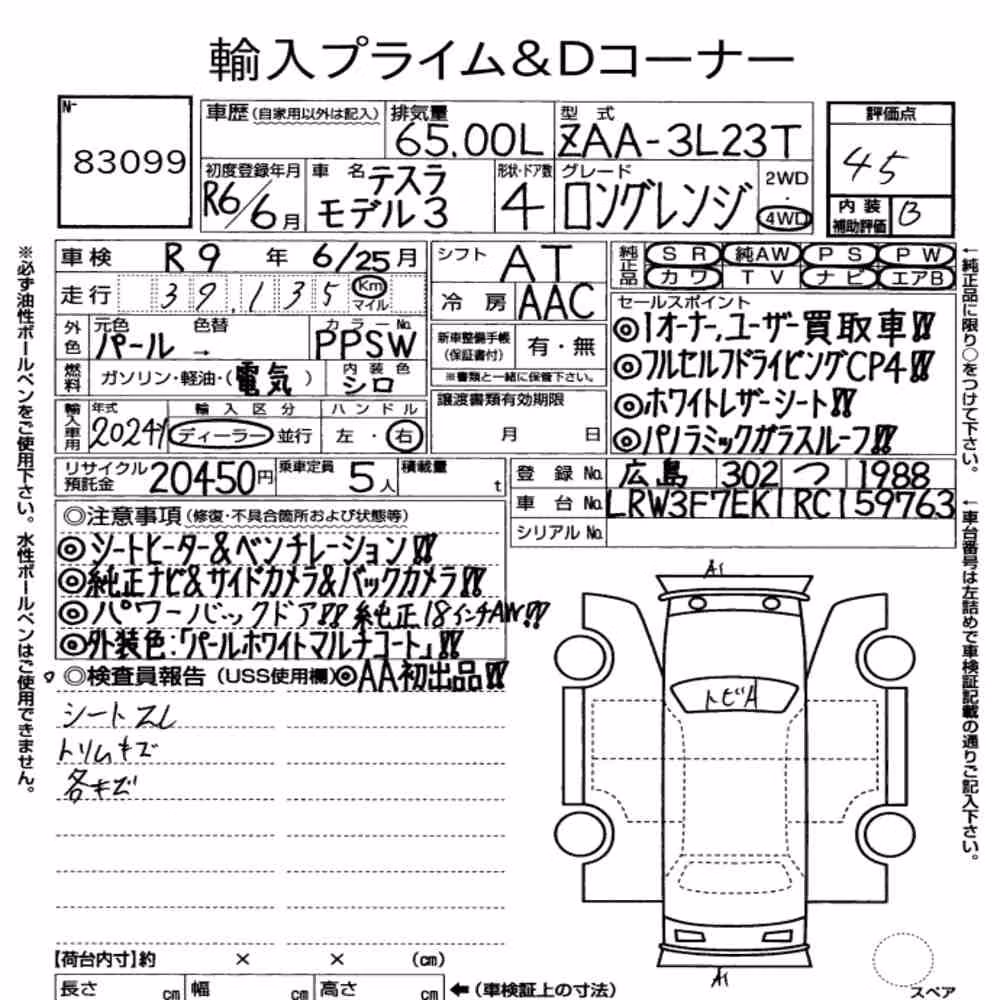 輸入プライム&Dコーナー
N-
83099
車歴(自家用以外は記入)
排気量
65.00L
型式
ZAA-3L23T
評価点
45
初度登録年月
R6/6月
車名
テスラ
モデル3
形状・ドア数
4
グレード
ロングレンジ
2WD
・
4WD
内装
補助評価
B
車検 R9年 6/25月
シフト AT
純正品
SR 純AW PS PW
カワ TV ナビ エアB
走行 39,135 Km
マイル
冷房 AAC
セールスポイント
◎1オーナー,ユーザー買取車!!
◎フルセルフドライビングCP4!!
◎ホワイトレザーシート!!
◎パノラミックガラスルーフ!!
外色
元色 色替
パール →
カラーNo.
PPSW
新車整備手帳
(保証書付)
有・無
※書類と一緒に保管下さい。
燃料
ガソリン・軽油・(電気)
内装色
シロ
譲渡書類有効期限
月 日
輸入車用
年式
2024
輸入区分
ディーラー 並行
ハンドル
左・右
リサイクル
預託金
20450円
乗車定員
5人
積載量
t
登録No.
広島 302 つ 1988
車台No.
LRW3F7EK1RC159763
シリアルNo.
◎注意事項(修復・不具合箇所および状態等)
◎シートヒーター&ベンチレーション!!
◎純正ナビ&サイドカメラ&バックカメラ!!
◎パワーバックドア!!純正18インチAW!!
◎外装色:「パールホワイトマルチコート」!!
◎検査員報告(USS使用欄)
◎AA初出品!!
シートスレ
トリムキズ
各キズ
A1
トビA
A1
【荷台内寸】約 × × (cm)
長さ cm 幅 cm 高さ cm
←(車検証上の寸法)
スペア
※必ず油性ボールペンをご使用下さい。水性ボールペンはご使用できません。
←純正品に限り○をつけて下さい。
←車台番号は左詰めで車検証記載の通りご記入下さい。